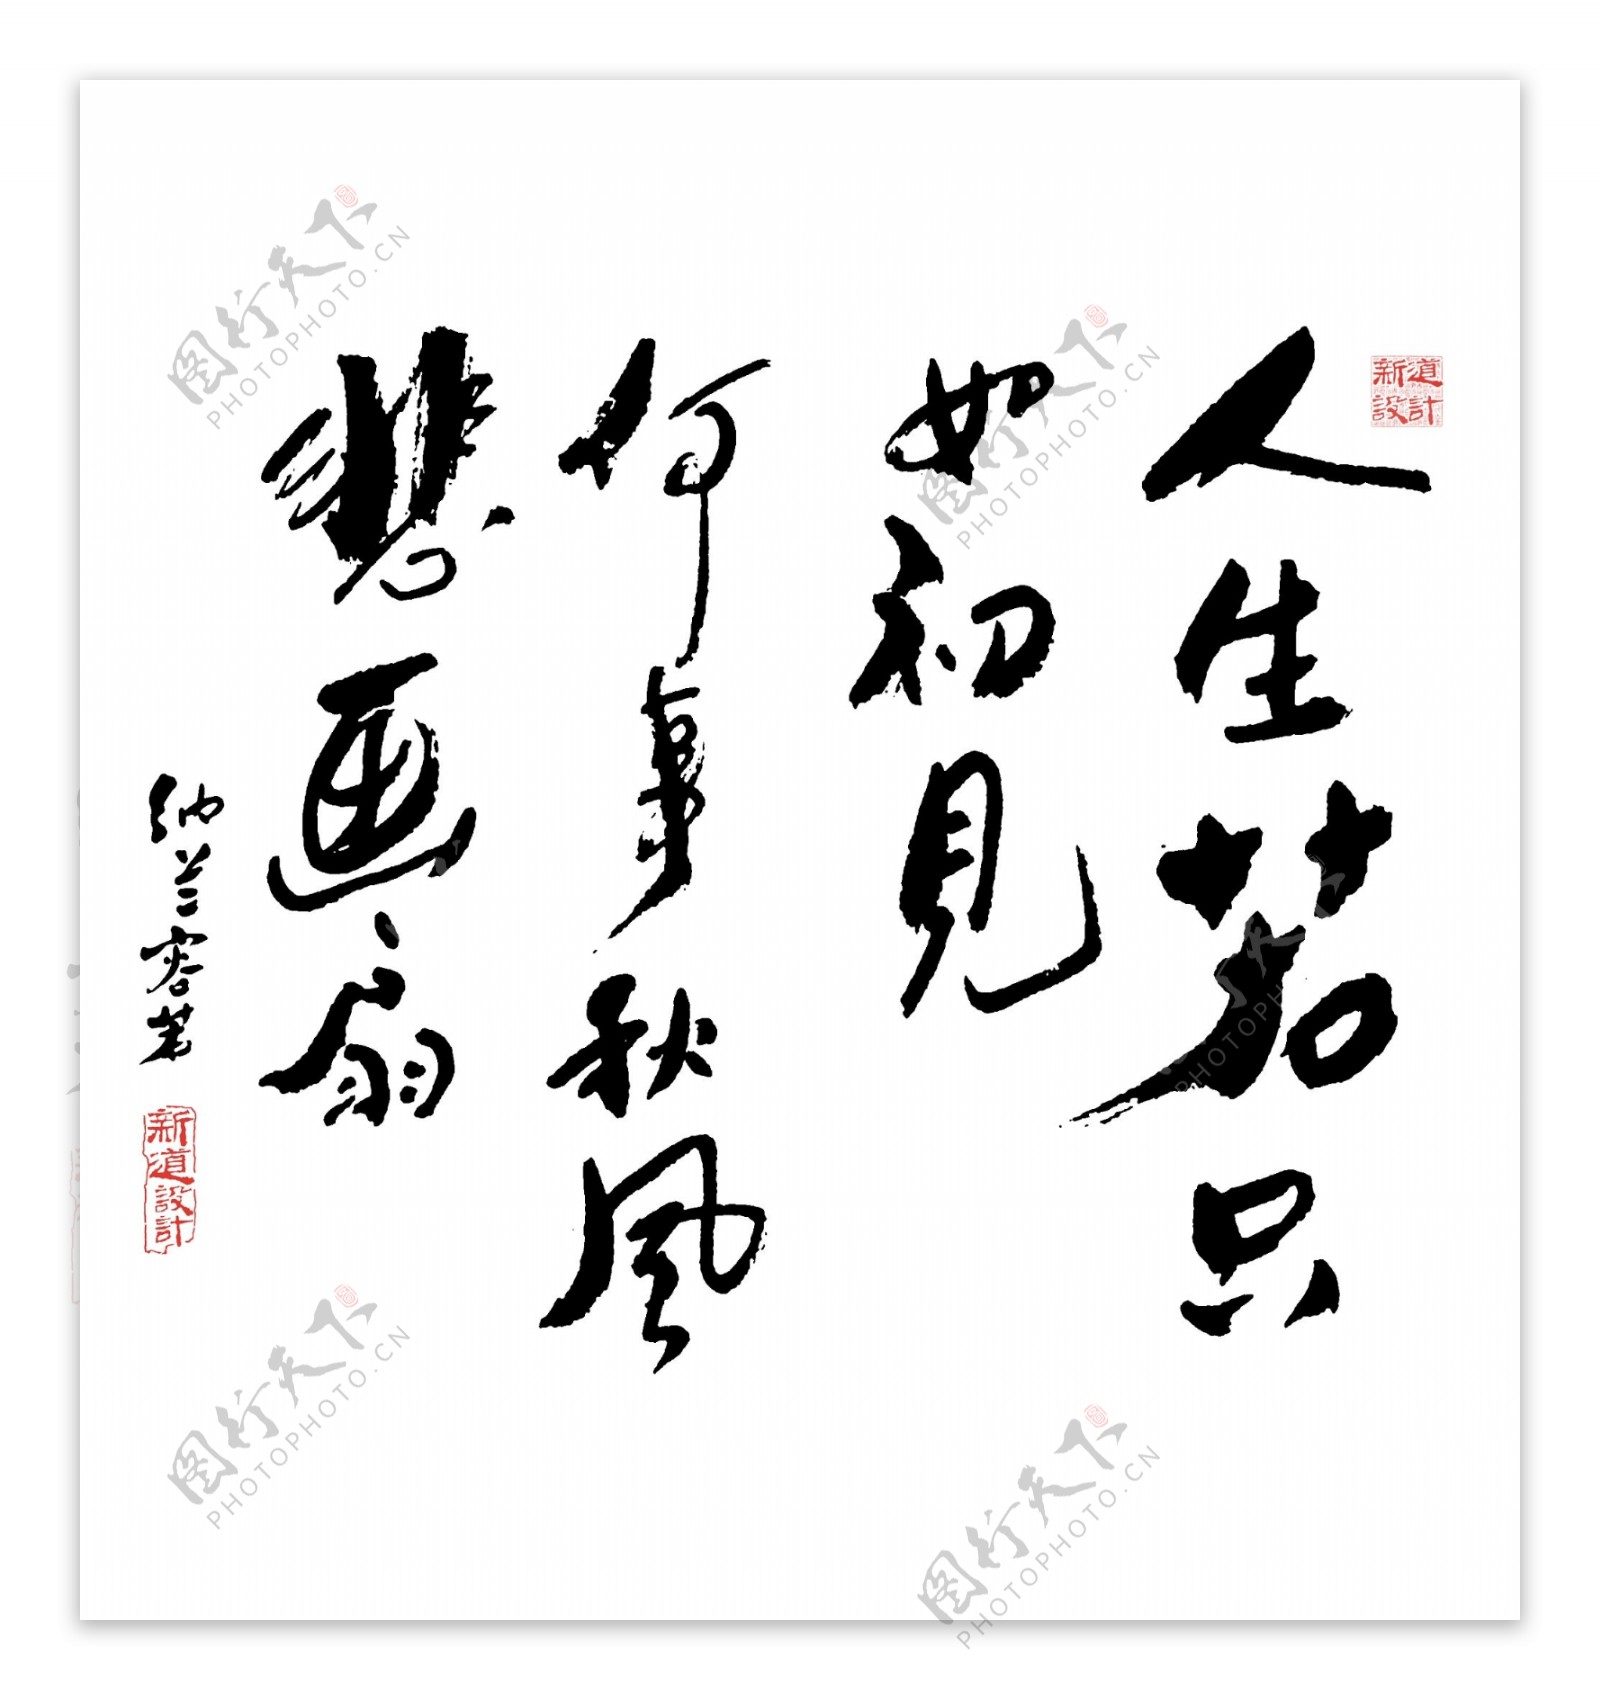 人生若只
如初见
何事秋风
悲画扇
纳兰容若
新道設計
新道
設計
图行天下
PHOTOPHOTO.CN
图行天下
PHOTOPHOTO.CN
图行天下
PHOTOPHOTO.CN
图行天下
PHOTOPHOTO.CN